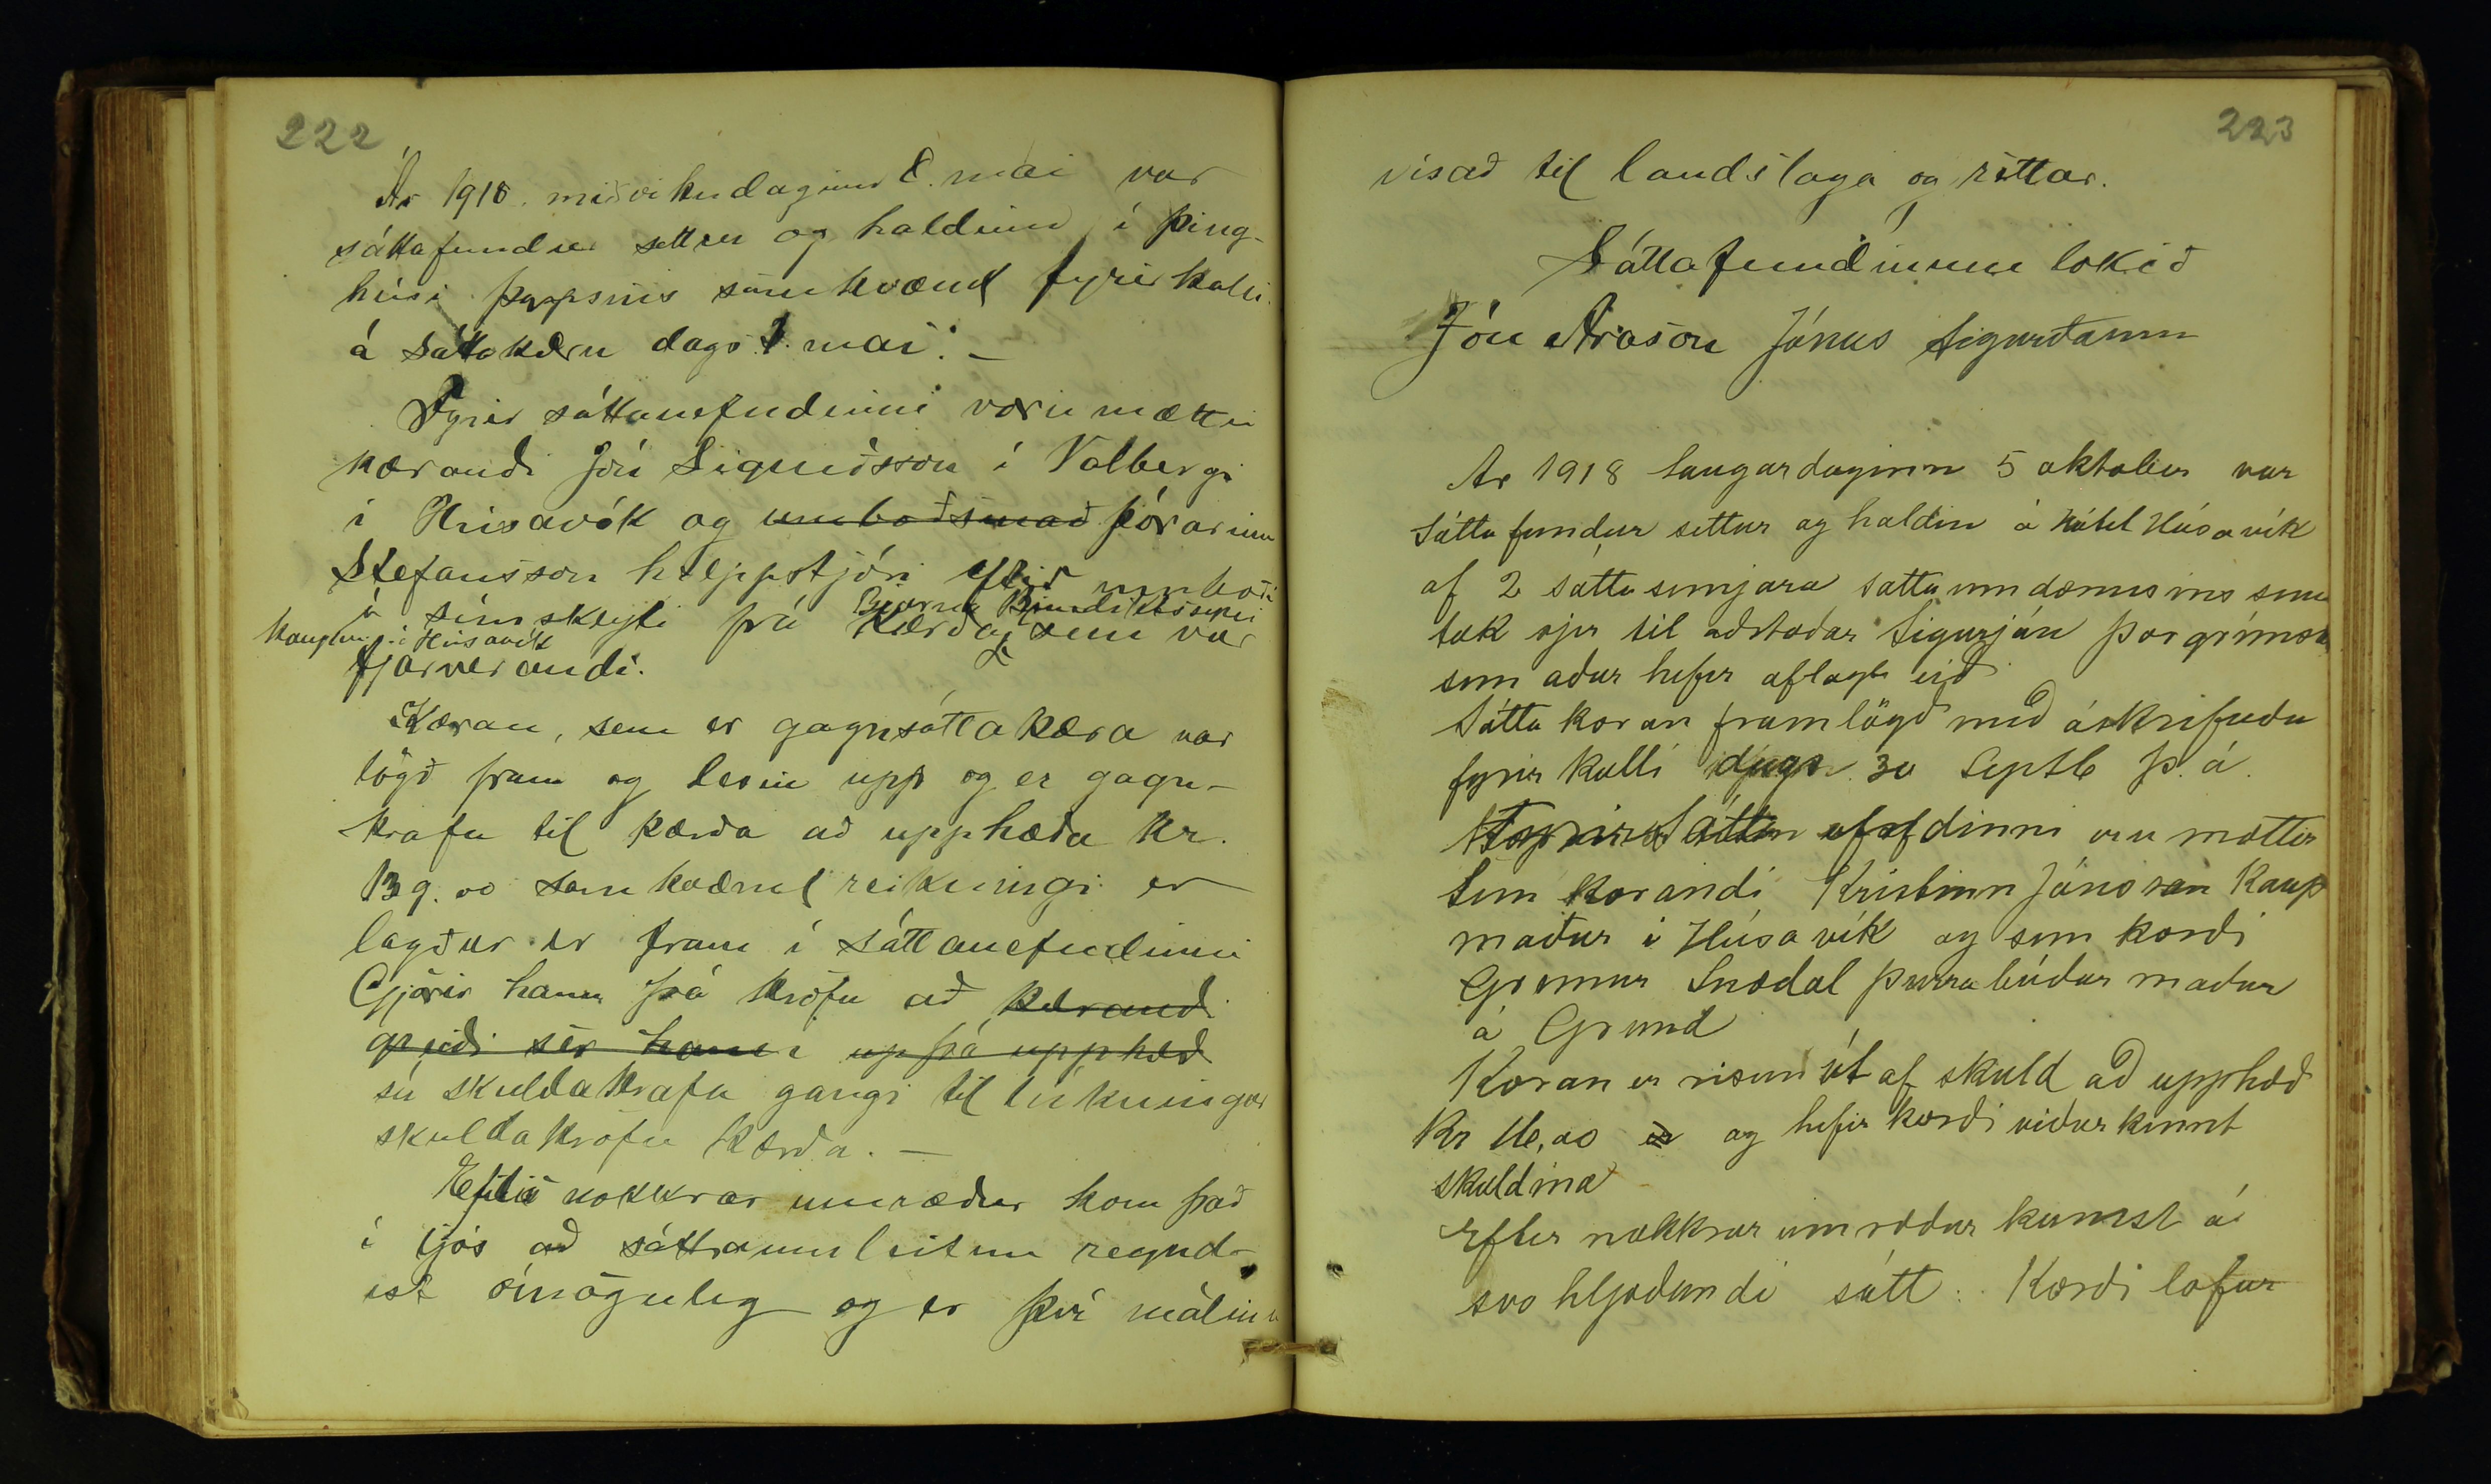 222
Ár 1918. miðvikudaginn 8. mai var
sáttafundur settur og haldinn í þing-
húsi þorpsins samkvæmt fyrirkalli
á sáttakæru dags 1. mai. –
Fyrir sáttanefndinni voru mættir
kærandi Jón Sigurðsson í Valbergi
í Húsavík og umboðsmað Þórarinn
Stefansson hreppstjóri eftir umboði
í símskeyti frá kærða Bjarna Benediktssyni
kaupm. í Húsavík sem var
fjarverandi.
Kæran, sem er gagnsáttakæra var
lögð fram og lesin upp og er gagn-
krafa til kærða að upphæða kr.
139.00 samkvæmt reikningi er
lagður er fram í sáttanefndinni
Gjörir hann þá kröfu að kærandi
greiði sér hann upp þá upphæð
sú skuldakrafa gangi til lúkningar
skuldakröfu kærða. –
Eftir nokkrar umræður kom það
í ljós að sáttaumleitun reynd-
ist ómöguleg og er því málinu
223
vísað til landslaga og réttar.
Sáttafundinum lokið
Jón Arason Jónas Sigurðsson
Ar 1918 laugardaginn 5 oktober var
Sáttafundur settur og haldin á Hótel Húsavík
af 2 sáttasemjara sattaumdæmisins sem
tok sjer til aðstoðar Sigurjón Þorgrímss
sem aður hefur aflagt eið
Sáttakæran framlögð með áskrifuðu
fyrir kalli dags 30 Septb þ. á.
Fyrir Sáttanefndinni eru mættir
Sem kærandi Kristinn Jónsson Kaup
maður i Húsavík og sem kærði
Grimur Snædal þurrabúðar maður
á Grund
Kæran er risin út af skuld að upphæð
Kr 16,00 er og hefir kærði viðurkennt
skuldina
Eftir nokkrar umræður kumst á
svo hljoðandi sátt: Kærði lofar